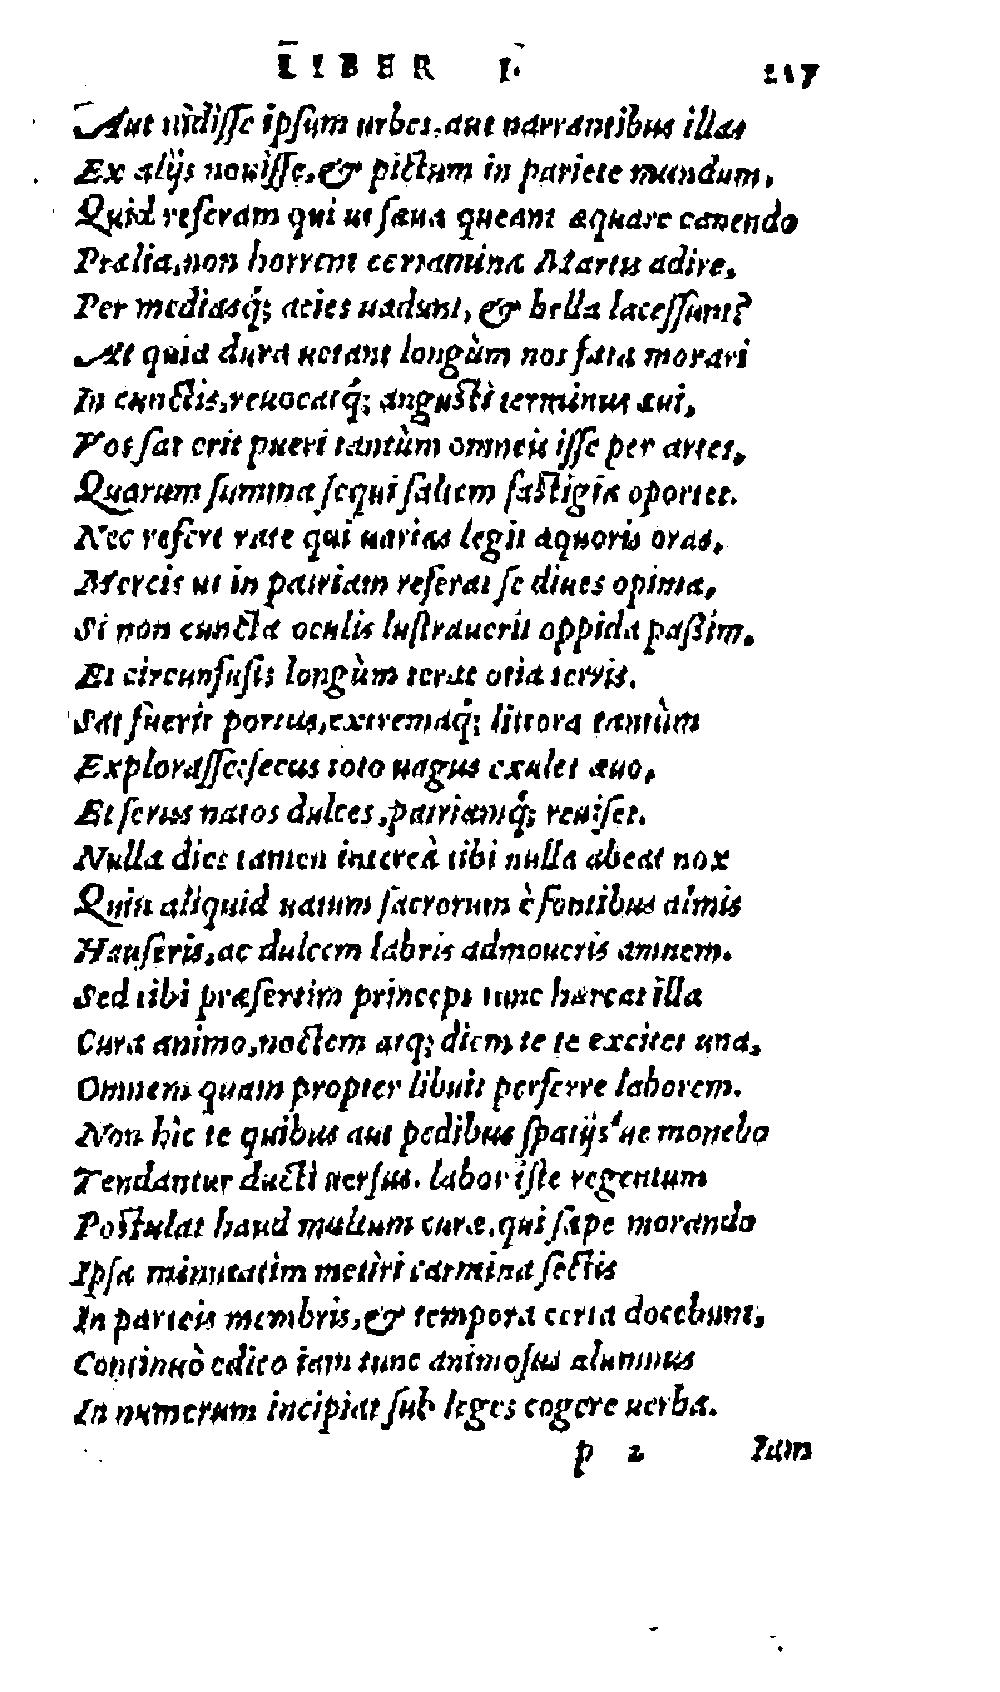 LIBER I. 227
Aut uidisse ipsum urbes, aut narrantibus illas
Ex alijs nouisse, & pictum in pariete mundum,
Quid referam qui ut saua queant aquare canendo
Prælia, non horrent certamina Martis adire,
Per mediasq́; acies uadunt, & bella lacessunt?
At quia dura uetant longùm nos fata morari
In cunctis, reuocatq́; angusti terminus æui,
Vos sat erit pueri tantùm omneis isse per artes,
Quarum summa sequi saltem fastigia oportet.
Nec refert rate qui uarias legit æquoris oras,
Mercis ut in patriam referat se diues opima,
Si non cuncta oculis lustrauerit oppida paßim,
Et circunfusis longùm terat otia terris.
Sat fuerit portus, extremaq́; littora tantùm
Explorasse: secus toto uagus exulet æuo,
Et serus natos dulces, patriamq́; reuiset.
Nulla dies tamen intereà tibi nulla abeat nox
Quin aliquid uatum sacrorum è fontibus almis
Hauseris, ac dulcem labris admoueris amnem.
Sed tibi præsertim princeps tunc hæreat illa
Cura animo, noctem atq; diem te te excitet una,
Omnem quam propter libuit perferre laborem.
Non hîc te quibus aut pedibus spatijs'ue monebo
Tendantur ducti uersus. labor iste regentum
Postulat haud multum curæ, qui sæpe morando
Ipsa minutatim metiri carmina sectis
In parteis membris, & tempora certa docebunt,
Continuò edico iam tunc animosus alumnus
In numerum incipiat sub leges cogere uerba.
p 2 Iam